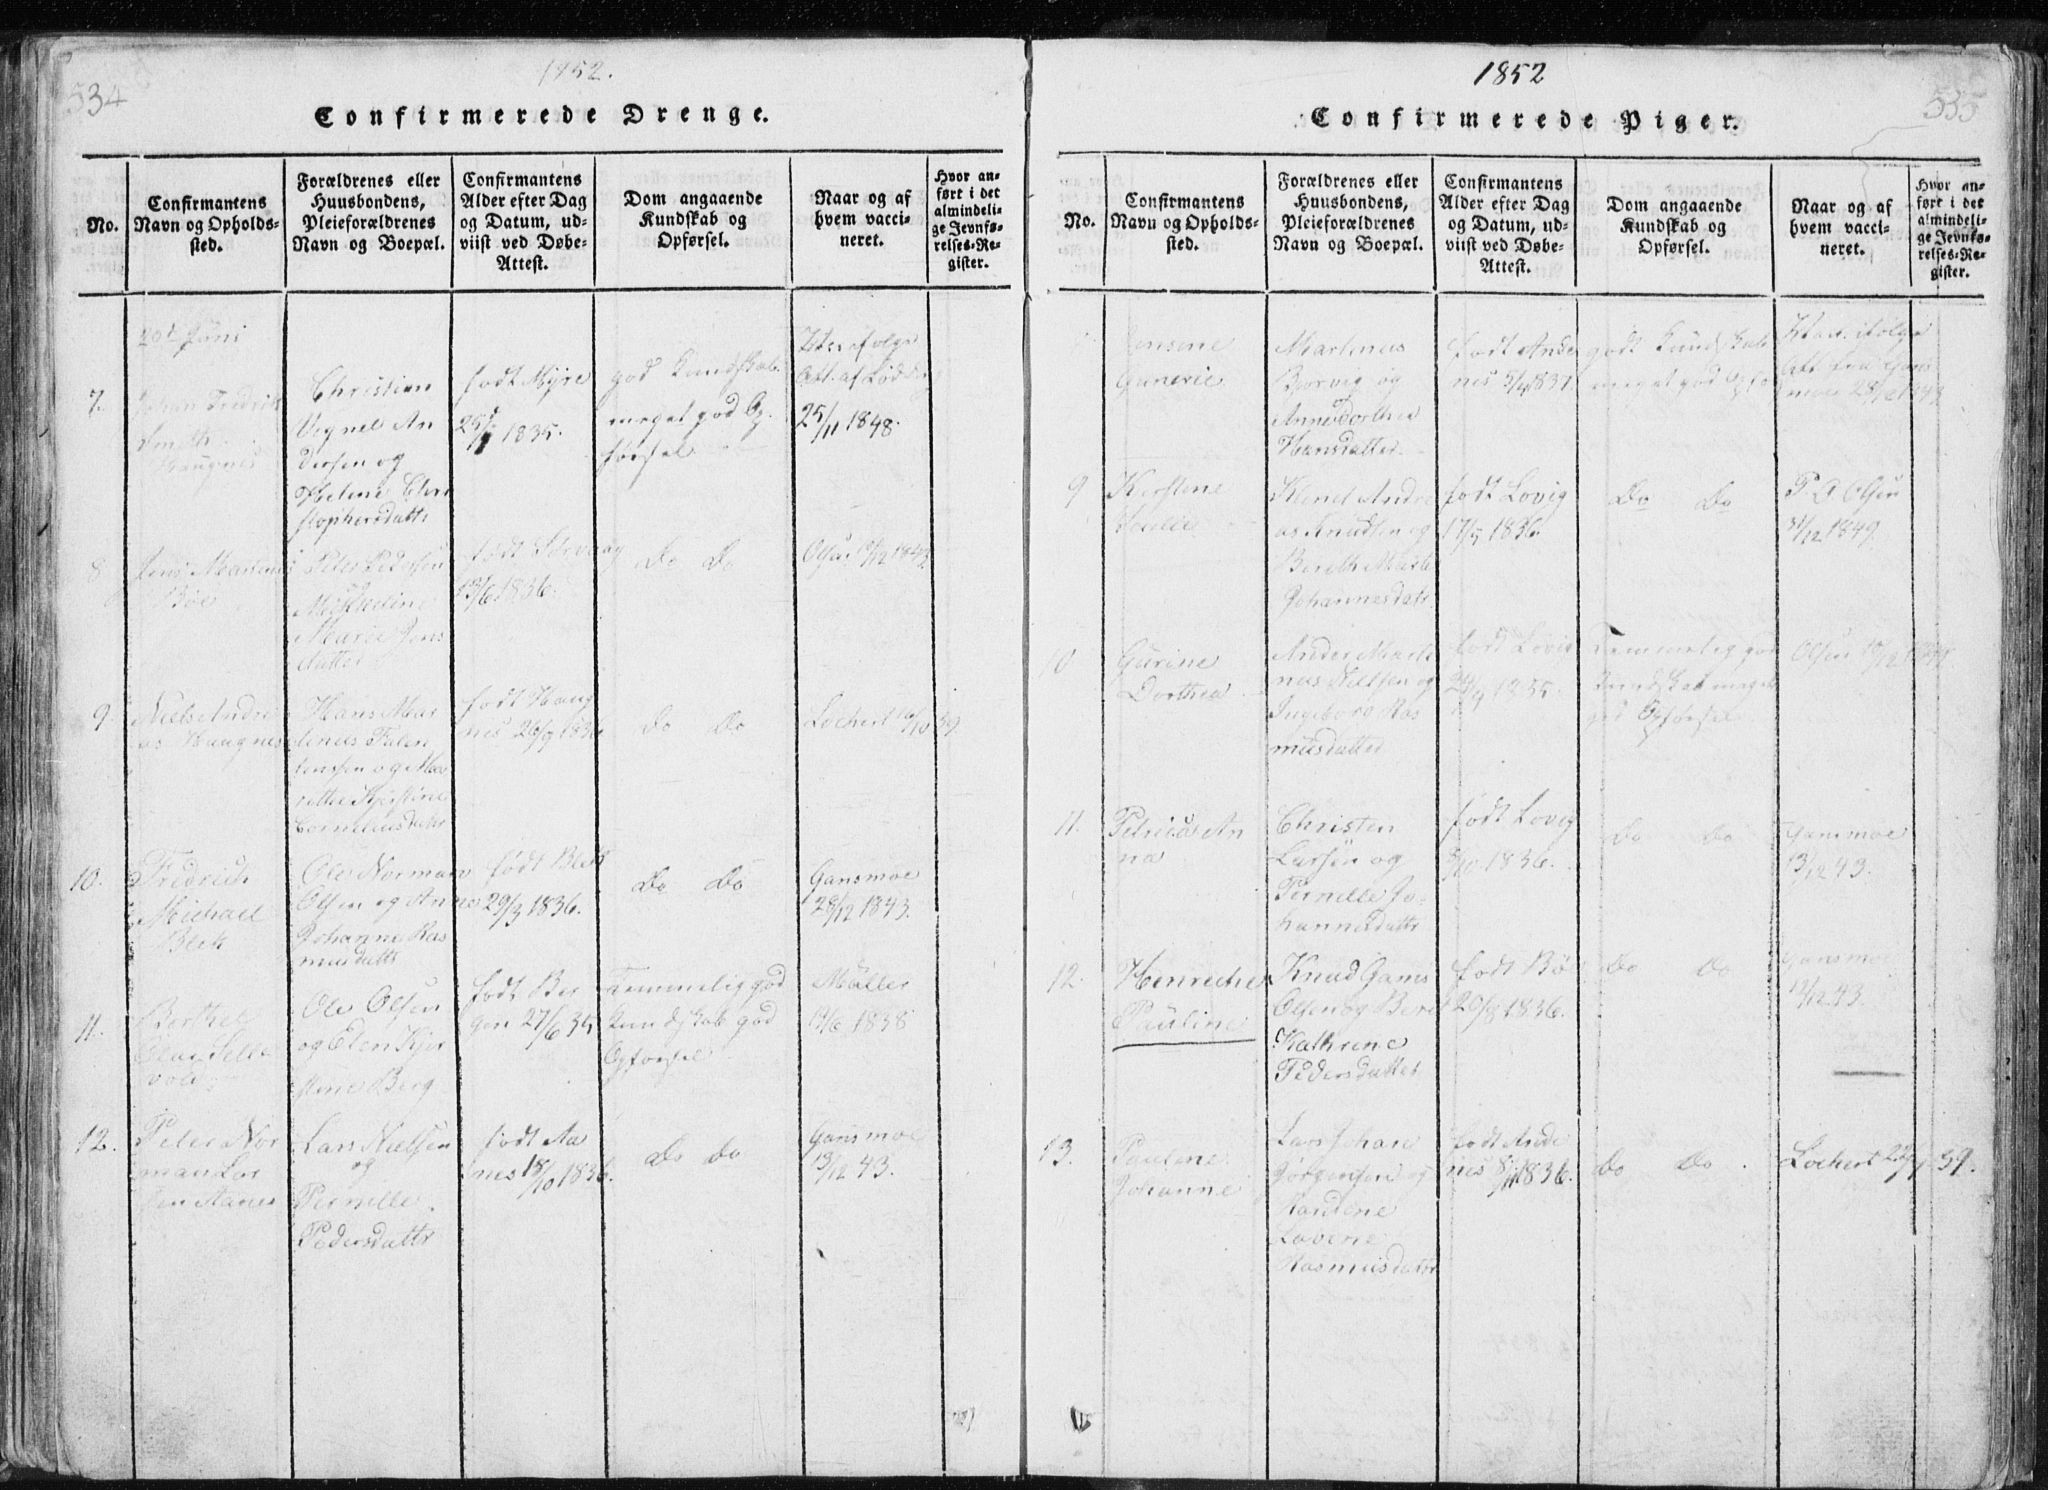 534
1852.
Confirmerede Drenge.
No.
Confirmantens Navn og Opholds-sted.
Forældrenes eller Huusbondens, Pleieforældrenes Navn og Boepæl.
Confirmantens Alder efter Dag og Datum, ud-viist ved Døbe-Attest.
Dom angaaende Kundskab og Opførsel.
Naar og af hvem vacci-neret.
Hvor an-ført i det almindeli-ge Jevnfø-relses-Re-gister.
7.
Johan Fredrik
Smith
Haugnes
Christian
Vognel An
dersen og
Helene Chri
stophersdattr
født Myre
1835.
god Kundskab
meget god Op-
førsel
Att. af Lødding
25/11 1848.
8
Jens Martinus
Böe
Peter Pedersen
Marie Jens
datter
født Sørvaag
13/6 1836.
Do Do
Olsen 1843
9
Niels Andre
as Haugnes
Hans Mar
tinus Falen
tensen og Ma
rethe Kjerstine
Corneliusdattr
født Haug
nes 26/9 1836
Do Do
Lockert 16/10 39
10.
Fredrich
Michael
Blek
Ole Norman
Olsen og Anne
Johanne Ras
musdattr
født Blek
29/3 1836.
Do Do
Gansmoe
28/12 1843.
11.
Berthel
Olai Selle
vold
Ole Olsen
og Elen Kjer
stine Berg
født Ber
gen 27/6 35
Temmelig god
Kundskab god
Opførsel
Müller
19/6 1838
12.
Peter Nor
man Lar
sen Aanes
Lars Nielsen
og
Pernille
Pedersdattr
født Aa
nes 18/10 1836.
Do Do
Gansmoe
13/12 43.
1852
535
Confirmerede Piger.
No.
Confirmantens Navn og Opholds-sted.
Forældrenes eller Huusbondens, Pleieforældrenes Navn og Boepæl.
Confirmantens Alder efter Dag og Datum, ud-viist ved Døbe-Attest.
Dom angaaende Kundskab og Opførsel.
Naar og af hvem vacci-neret.
Hvor an-ført i det almindeli-ge Jevnfø-relses-Re-gister.
Jensine
Gunerie
Martinus
Borvig og
Anne Dorthea
Hansdatter
født Ande
nes 5/4 1837
godt Kundskab
meget god Opfø
Att. fra Gans
moe 28/12 1843
9
Kerstine
Knudsen og
Bereth Marte
Johannesdatr
født Lovig
17/5 1836.
Do Do
P A Olsen
1849.
10
Gurine
Dorthea
Ander Marti
nus Nielsen og
Ingeborg Ras
musdatter
født Lovig
1835.
Temmelig god
Kundskab meget
god Opførsel
Olsen
11.
Petrica An
na
Christen
Larsen og
Pernelle Jo-
hannesdattr
født Lovig
1836.
Do Do
Gansmoe
13/12 43.
12.
Henrecke
Pauline
Knud Gams
Olsen og Beret
Kathrene
Pedersdatter
født Böe
20/8 1836.
Do Do
Gansmoe
13/12 43.
13.
Paulene
Johanne
Lars Johan
Jørgensen og
Randene
Lovene
Rasmusdattr
født Ande
nes 8/11 1836.
Do Do.
Lockert 39.